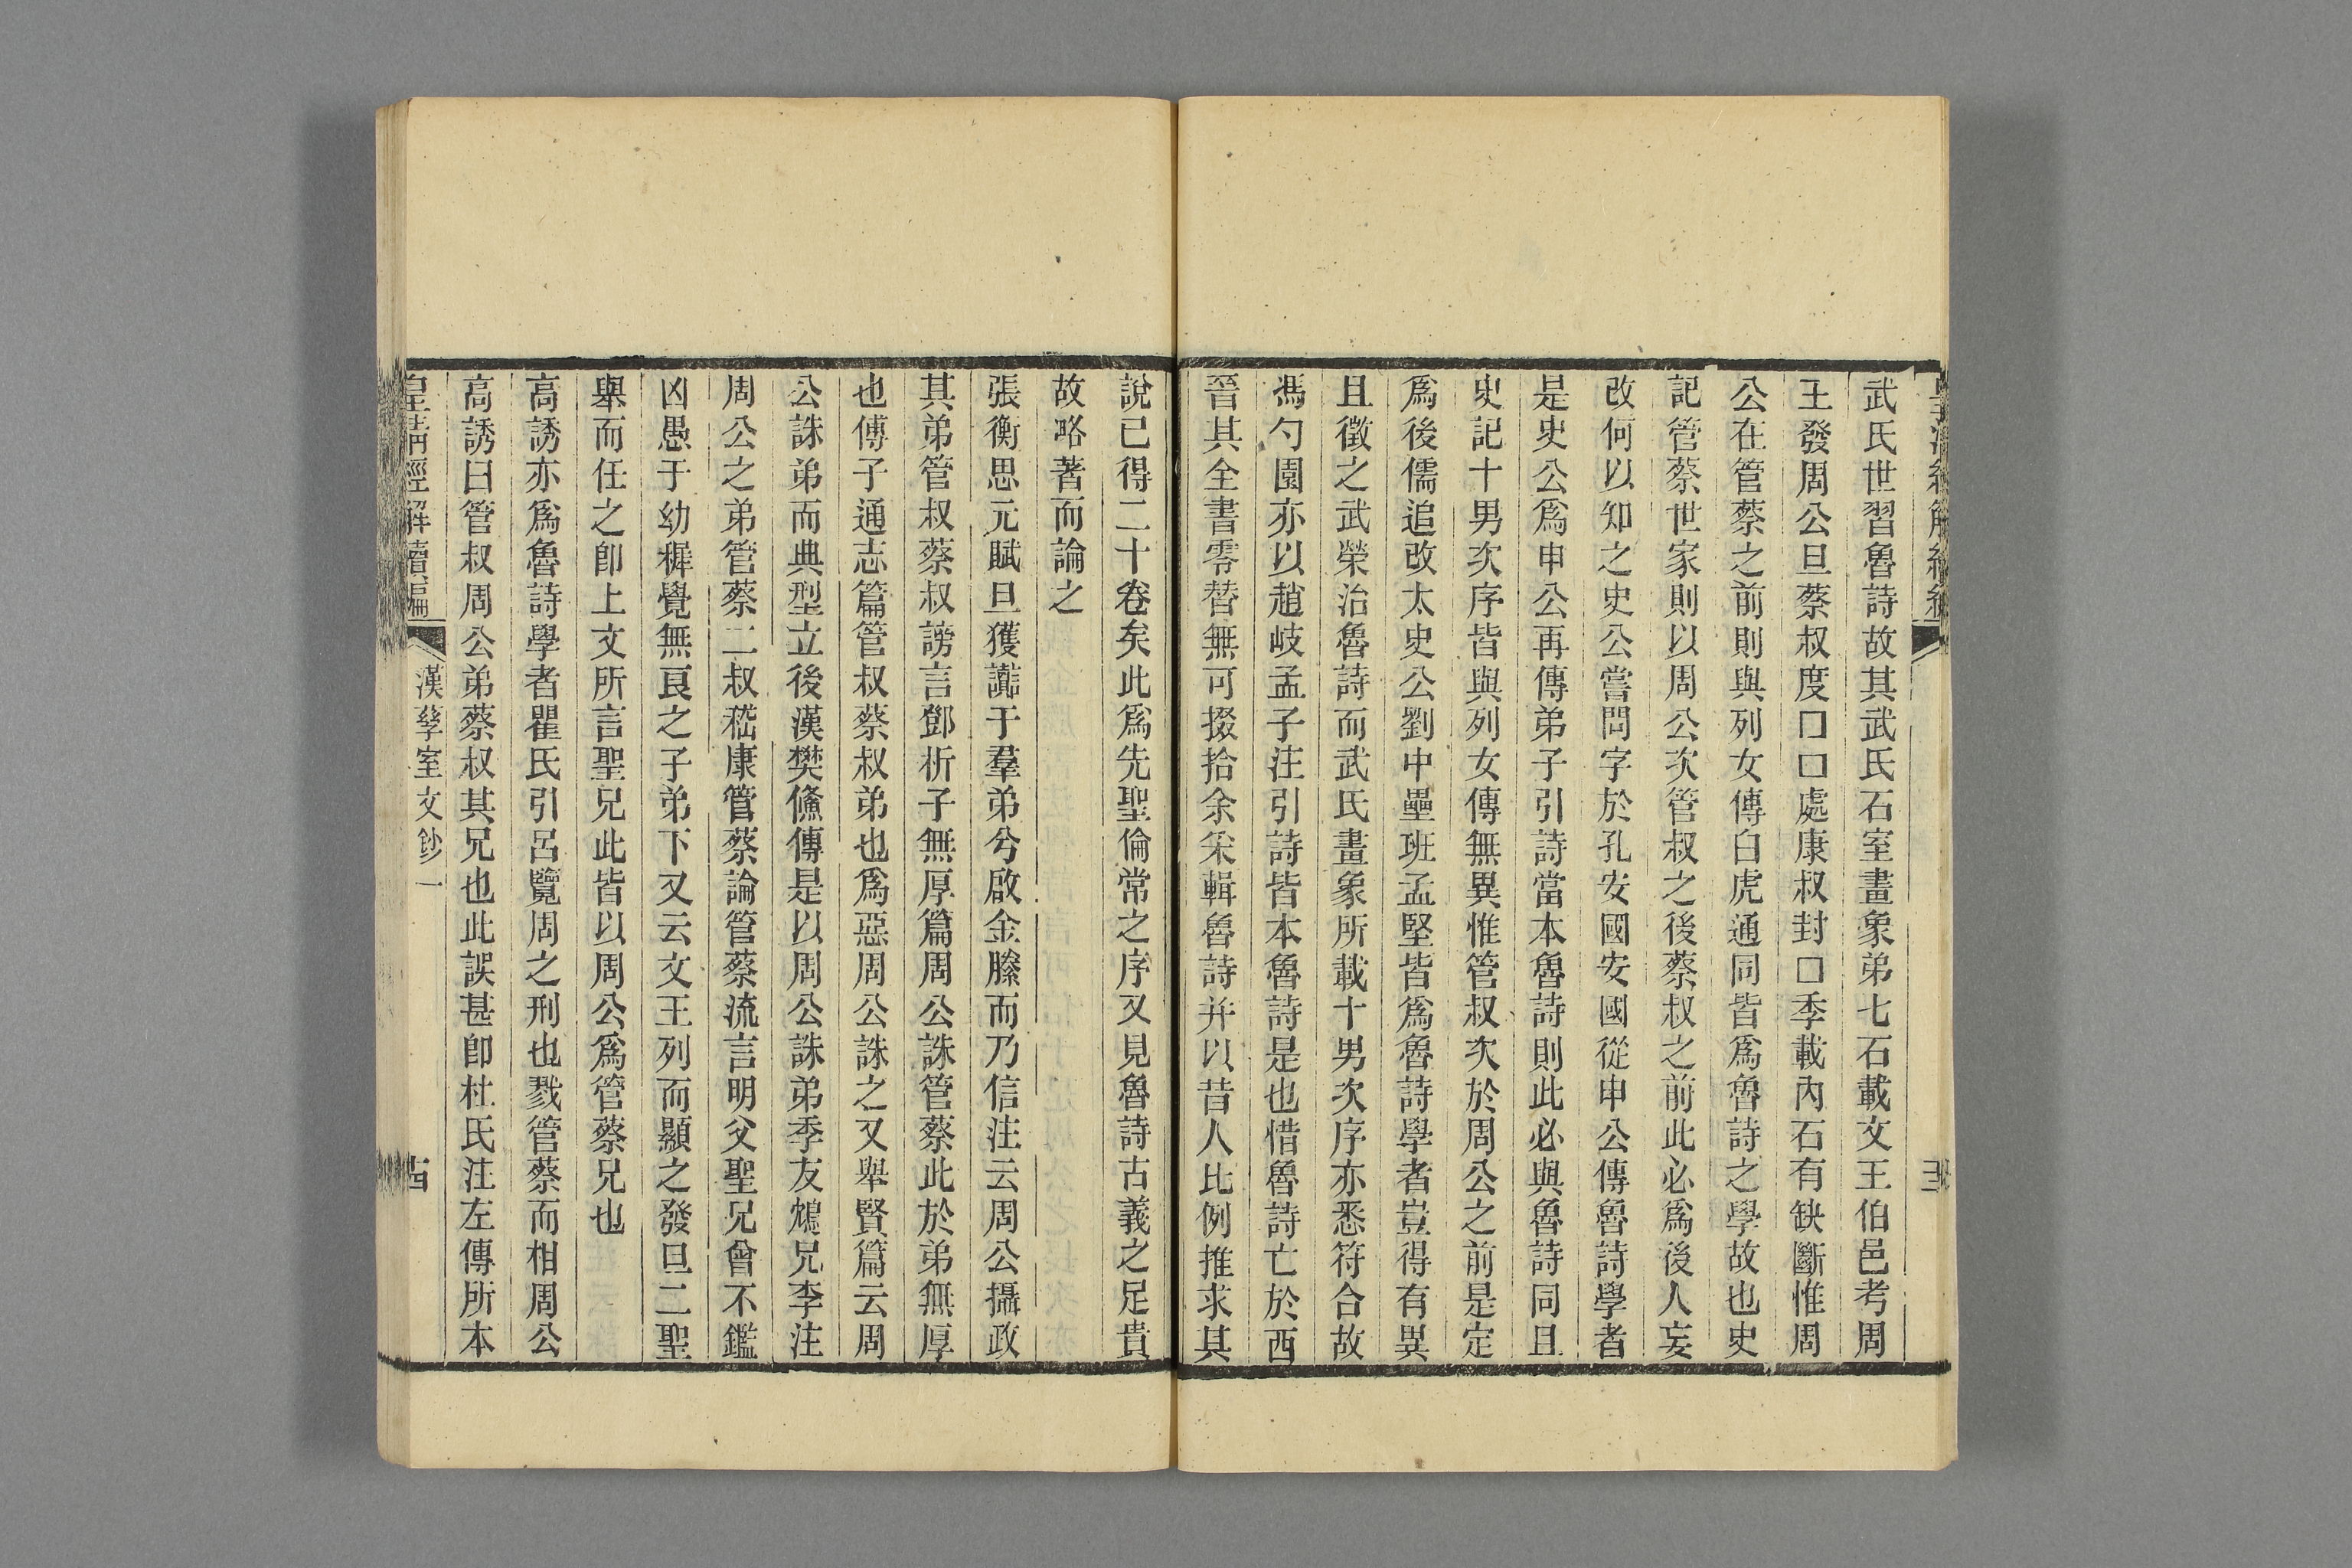 武氏世習魯詩故其武氏石室畫象弟七石載文王伯邑考周
王發周公旦蔡叔度□□處康叔封□季載內石有缺斷惟周
公在管蔡之前則與列女傳白虎通同皆爲魯詩之學故也史
記管蔡世家則以周公次管叔之後蔡叔之前此必爲後人妄
改何以知之史公嘗問字於孔安國安國從申公傳魯詩學者
是史公爲申公再傳弟子引詩當本魯詩則此必與魯詩同且
史記十男次序皆與列女傳無異惟管叔次於周公之前是定
爲後儒追改太史公劉中壘班孟堅皆爲魯詩學者豈得有異
且徵之武榮治魯詩而武氏畫象所載十男次序亦悉符合故
馮勺園亦以趙岐孟子注引詩皆本魯詩是也惜魯詩亡於西
晉其全書零替無可掇拾余宋輯魯詩并以昔人比例推求其
說已得二十卷矣此爲先聖倫常之序又見魯詩古義之足貴
故略著而論之
張衡思元賦旦獲讟于羣弟兮啟金縢而乃信注云周公攝政
其弟管叔蔡叔謗言鄧析子無厚篇周公誅管蔡此於弟無厚
也傅子通志篇管叔蔡叔弟也爲惡周公誅之又舉賢篇云周
公誅弟而典型立後漢樊儵傳是以周公誅弟季友鴆兄李注
周公之弟管蔡二叔嵇康管蔡論管蔡流言明父聖兄曾不鑑
凶愚于幼穉覺無良之子弟下又云文王列而顯之發旦二聖
舉而任之卽上文所言聖兄此皆以周公爲管蔡兄也
高誘亦爲魯詩學者瞿氏引呂覽周之刑也戮管蔡而相周公
高誘曰管叔周公弟蔡叔其兄也此誤甚卽杜氏注左傳所本
皇清經解續編
漢孳室文鈔一
古